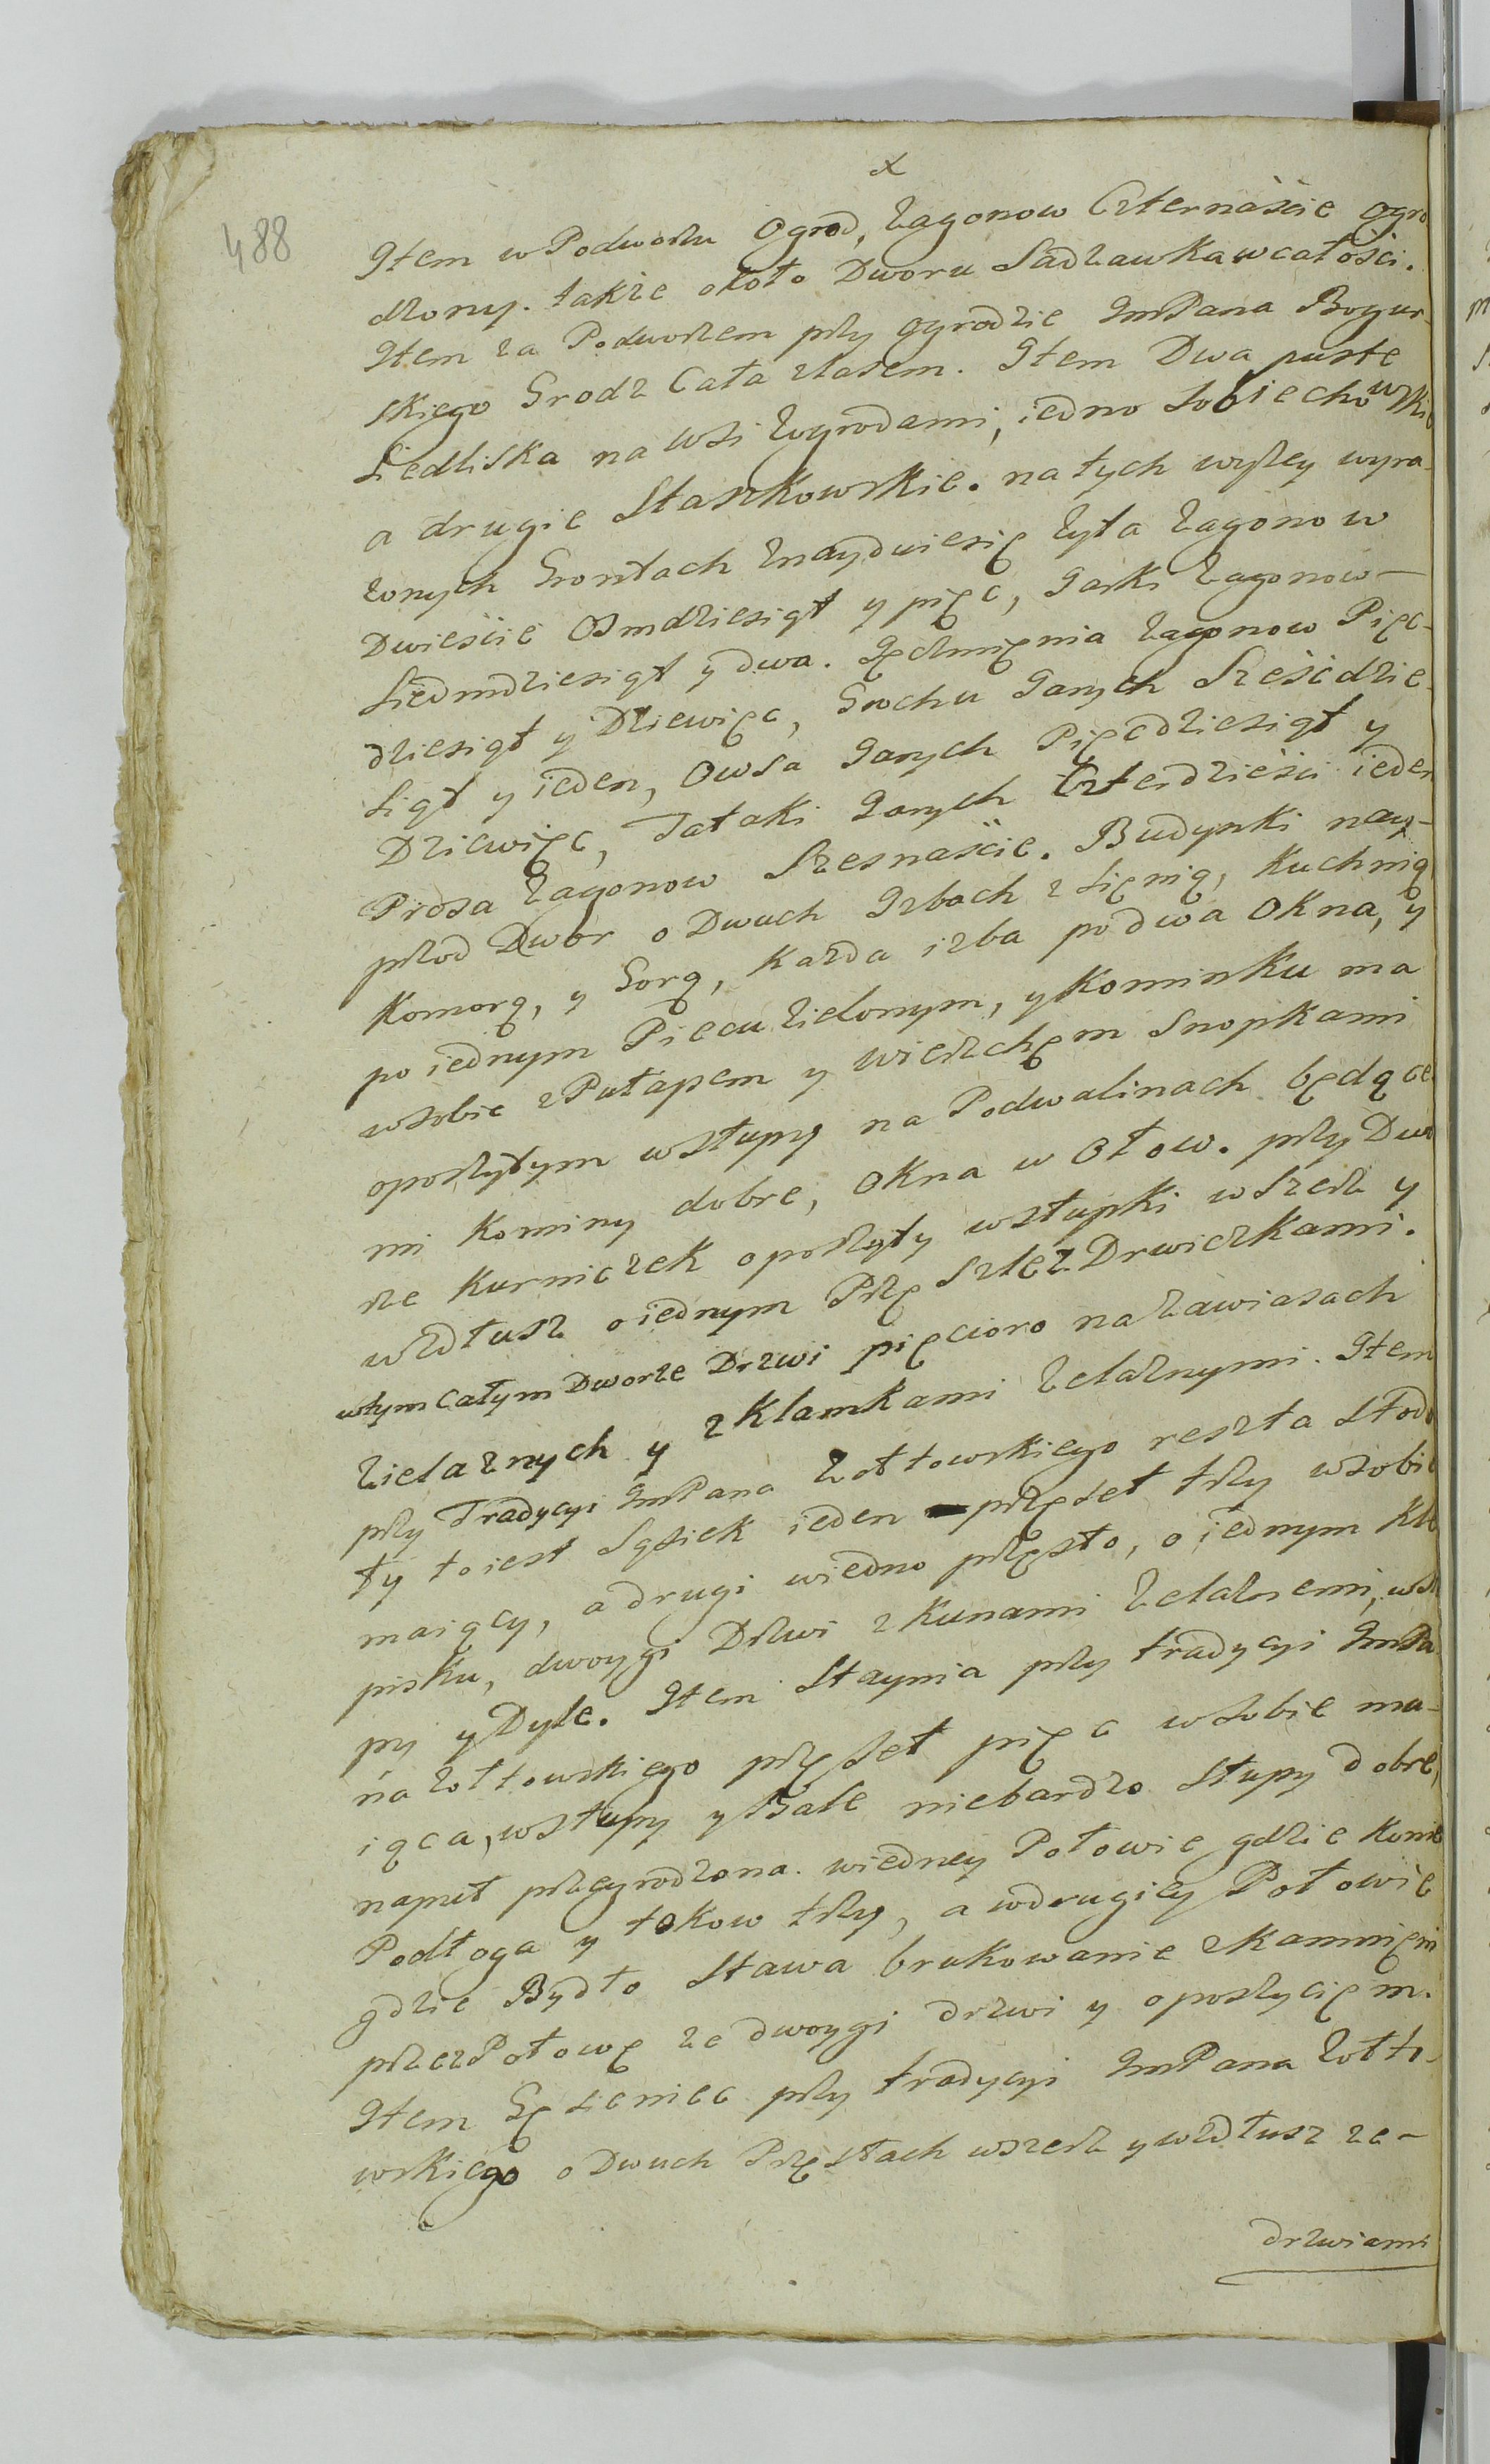 x
488
Item w Podworzu Ogrod, zagonow Czternaście ogro
dzony. także około Dworu Sadzawka w całości.
Item za Podworzem przy ogrodzie ImPana Bogur-
skiego Grodz Cała z lasem. Item Dwa puste
Siedliska na wsi z ogrodami, iedno Sobiechowskie
a drugie Staszkowskie. na tych wyżey wyra-
żonych Grontach znayduie się żyta zagonow
Dwieście Osmdziesiąt y pięć, Jarki zagonow –
Siedmdziesiąt y dwa. Jęczmienia zagonow Pięć-
dziesiąt y Dziewięć, Grochu Jarych Sześćdzie-
siąt y ieden, Owsa Jarych Pięćdziesiąt y
Dziewięć, Tataki Jarych Czterdzieści ieden
Prosa zagonow Szesnaście. Budynki nay-
przod Dwor o Dwuch Izbach z Sienią, Kuchnią
Komorą, y Gorą, każda izba po dwa Okna, y
po iednym Piecu zielonym, y Kominku ma
w sobie z Pułapem y wierzchem Snopkami
oposzytym w słupy na Podwalinach będące
mi Kominy dobre, Okna w Ołow. przy Dwo
rze Kurniczek oposzyty w słupki w szerz y
wzdłusz o iednym Przęszle z Drwiczkami.
w tym całym Dworze Drzwi pięcioro na zawiasach
żielaznych y z Klamkami żelaznymi. Item
przy Tradycyi ImPana Żołtowskiego reszta Stodo
ły to iest Sąsiek ieden przęseł trzy w sobie
maiący, a drugi w iedno przęsło, o iednym Kle
pisku, dwoygi Drzwi z Kunami żelaznemi, w słu
py y Dyle. Item Staynia przy tradycyi ImPa
na Żołtowskiego przęseł pięć w sobie ma-
iąca, w słupy y Bale niebardzo Słupy dobre,
naput przegrodzona. w iedney Połowie gdzie Konie
Podłoga y żłobow trzy, a w drugiey Połowie
gdzie Bydło Stawa brukowanie z Kamnięni
przez Połowę ze dwoygi drzwi y oposzyciem.
Item Gęsieniec przy tradycyi ImPana Żołto-
wskiego o Dwuch Przęsłach wszerz y wzdłusz ze –
drzwiami